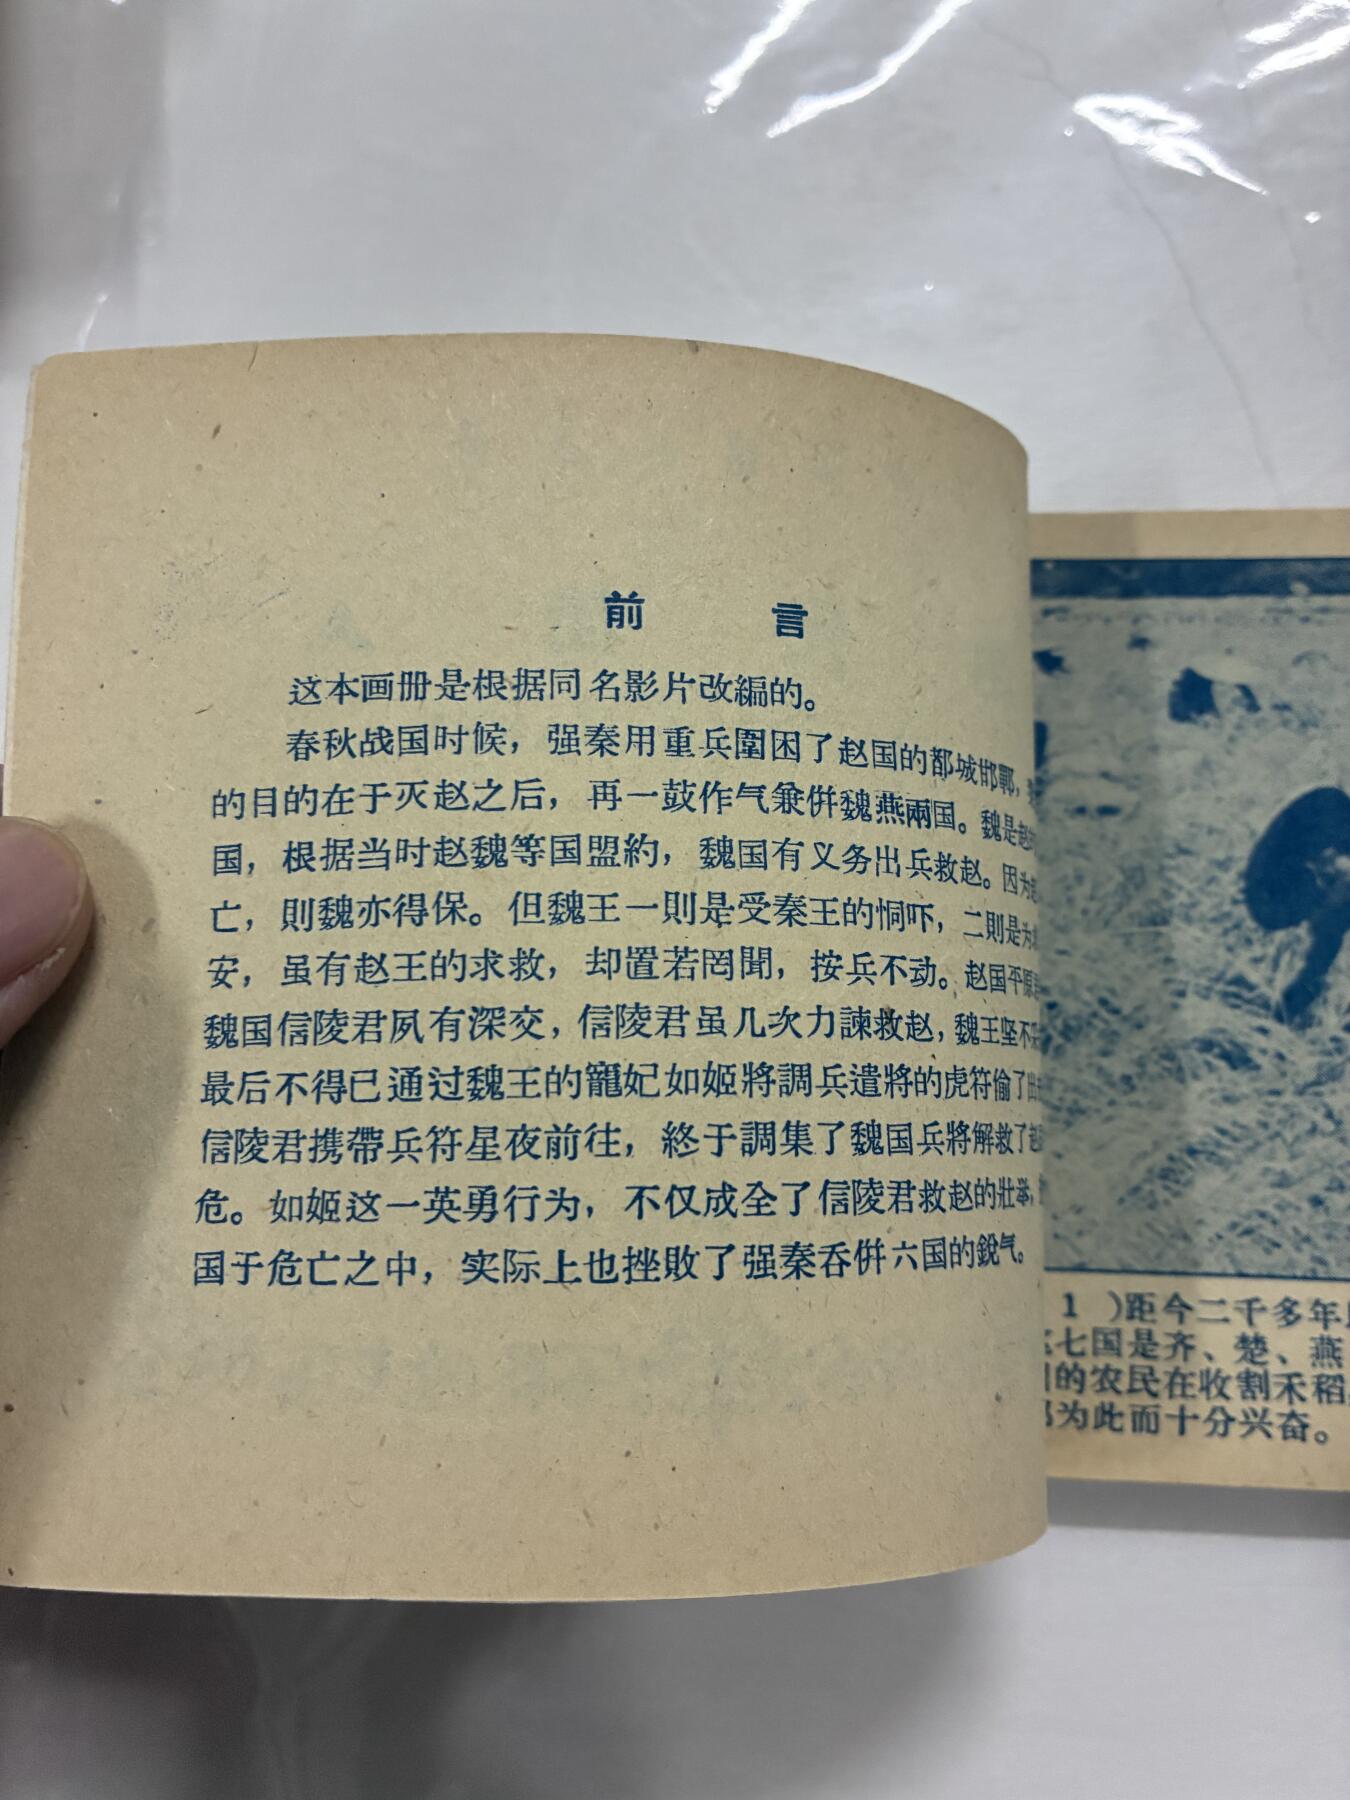 前言
这本画册是根据同名影片改編的。
春秋战国时候，强秦用重兵圍困了赵国的都城邯鄲，
的目的在于灭赵之后，再一鼓作气兼併魏燕兩国。魏是赵
国，根据当时赵魏等国盟約，魏国有义务出兵救赵。因为
亡，則魏亦得保。但魏王一則是受秦王的恫吓，二則是为
安，虽有赵王的求救，却置若罔聞，按兵不动。赵国平原
魏国信陵君夙有深交，信陵君虽几次力諫救赵，魏王坚不
最后不得已通过魏王的寵妃如姬將調兵遣將的虎符偷了出
信陵君携帶兵符星夜前往，終于調集了魏国兵將解救了赵
危。如姬这一英勇行为，不仅成全了信陵君救赵的壯举，
国于危亡之中，实际上也挫敗了强秦吞併六国的銳气。
1）距今二千多年
七国是齐、楚、燕
的农民在收割禾稻
为此而十分兴奋。